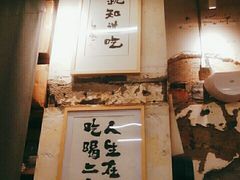 就知道吃
人生在
吃喝二